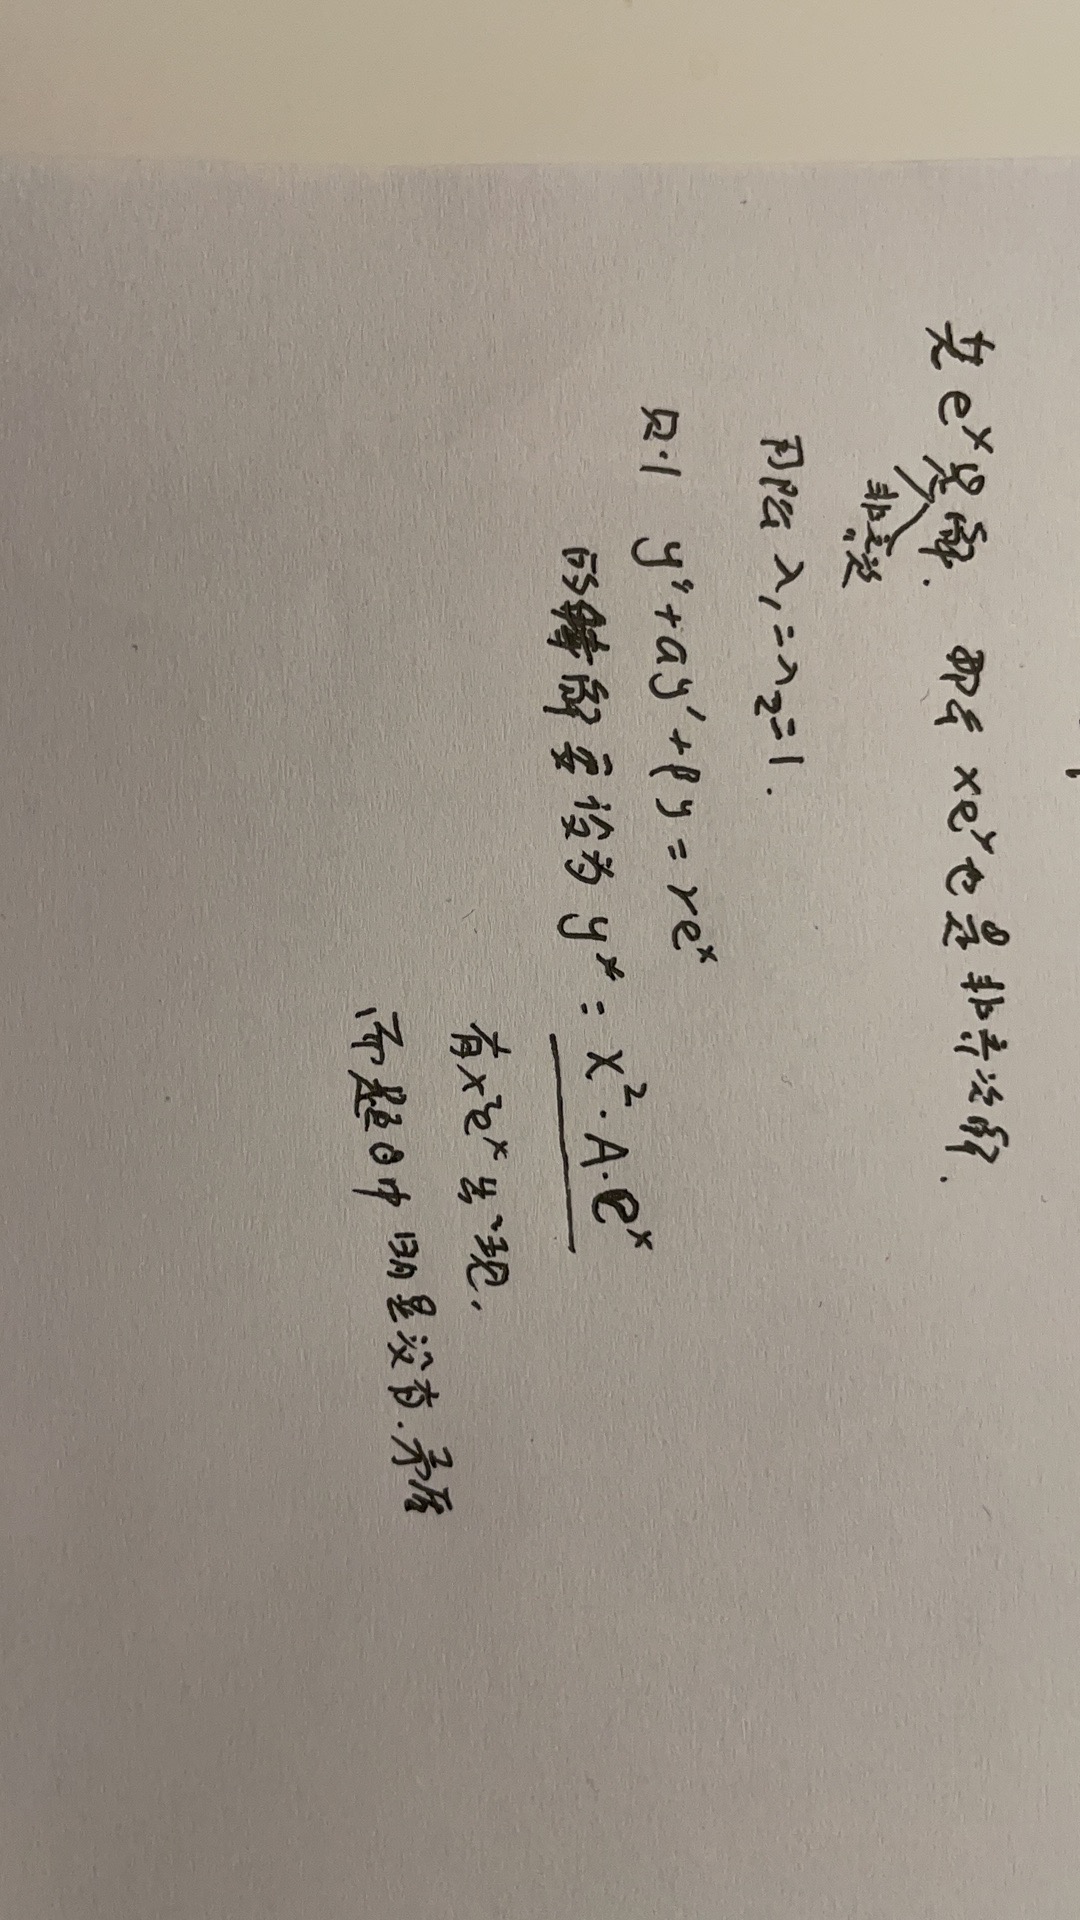 若 e^x 是解. 那么 xe^x 也是非齐次解.
非齐次
因此 λ₁=λ₂=1.
则 y''+αy'+βy=γe^x
的特解要设为 y*= x²·A·e^x
有x²e^x出现,
而题目中明显没有.矛盾